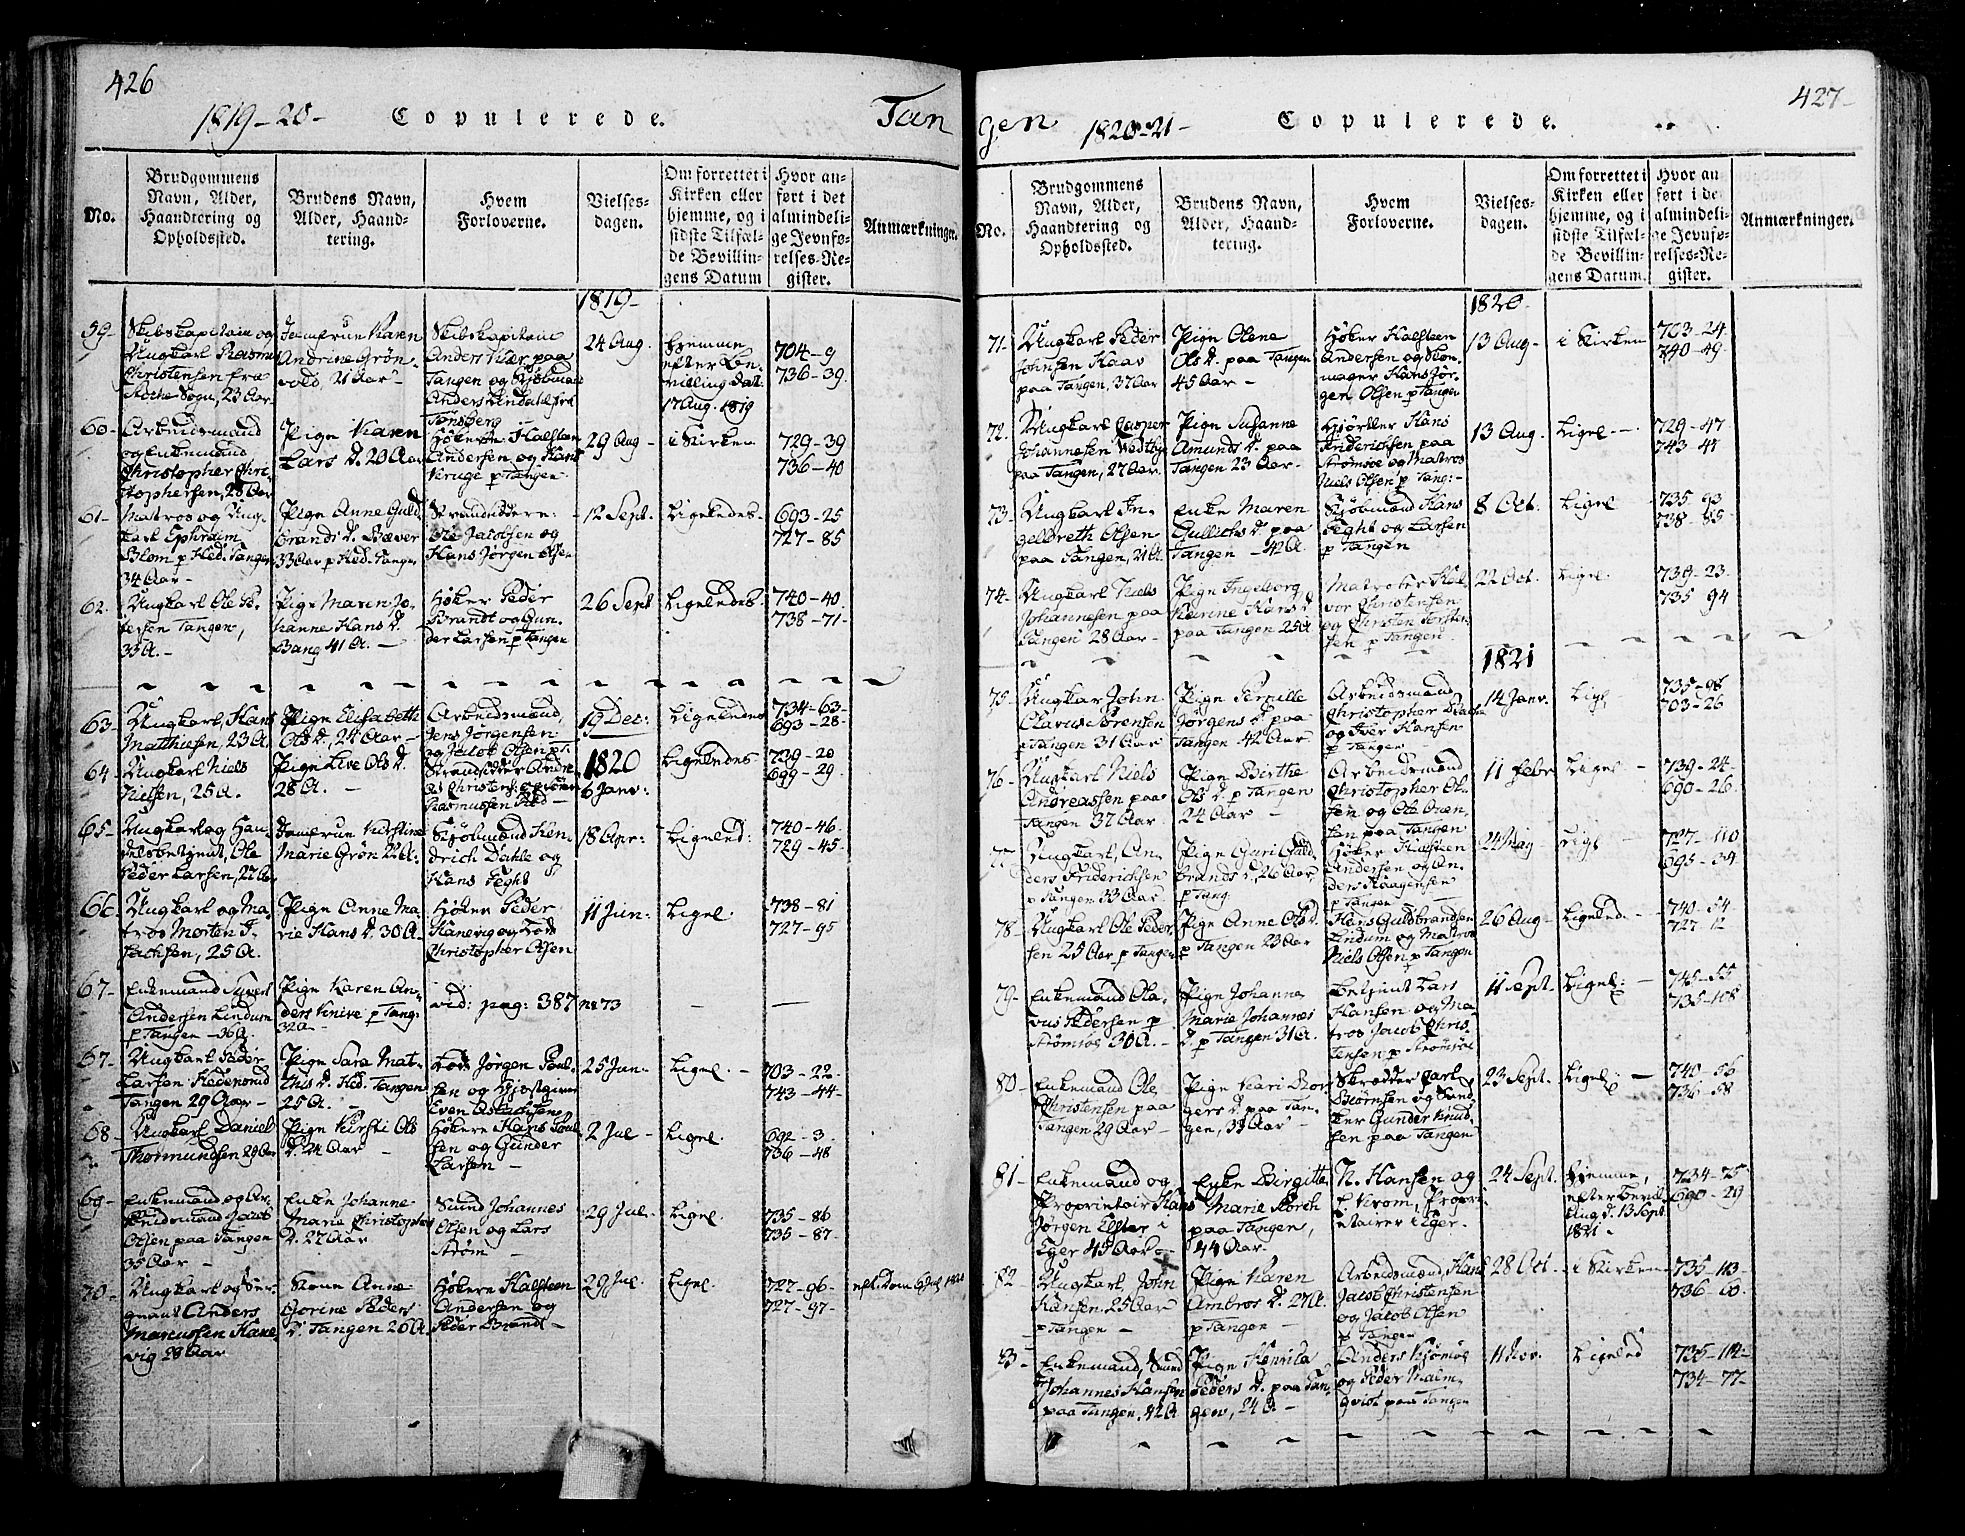 426
1819-20- Copulerede. Tan
No.
Brudgommens
Navn, Alder,
Haandtering og
Opholdssted.
Brudens Navn,
Alder, Haand-
tering.
Hvem
Forloverne.
Vielses-
dagen.
Om forrettet i
Kirken eller
hjemme, og i
sidste Tilfæl-
de Bevillin-
gens Datum
Hvor an-
ført i det
almindeli-
ge Jevnfø-
relses-Re-
gister.
Anmærkninger.
1819-
59-
Skibskapitain og
Ungkarl Rasmus
Christensen fra
Sogn, 23 Aar
Jomfrue Karen
Andrine Grøn-
vold, 21 Aar-
Skibskapitain
Anders Kiær paa
Tangen og Skibsmand
Anders Lindahl fra
Tønsberg
24 Aug.
Hjemme
efter Be-
villing dat.
17 Aug. 1819
704-9
736-39.
60-
Arbeidsmand
og Enkemand
Christopher Chri-
stophersen, 28 Aar
Pige Karen
Lars D. 20 Aar
Høkerne Halsteen
Andersen og Hans
Kruge p Tangen
29 Aug-
i Kirken
729-39
736-40
61-
Matros og Ung-
karl Ephraim
Blom p Hed. Tangen
34 Aar-
Pige Anne Guld-
brands D. Bæver
33 Aar p Hed. Tangen
Strandsiddere:
Ole Jacobsen og
Hans Jørgen Olsen
12 Sept.
Ligeledes-
693-25
727-85
62.
Ungkarl Ole Pe-
dersen Tangen,
33 A.-
Pige Maren Jo-
hanne Hans D.
Bang 41 A.-
Høker Peder
Brandt og Gun-
der Larsen p Tangen
26 Sept
Ligeledes.
740-40
738-71-
63-
Ungkarl, Hans
Matthiesen, 23 A.
Pige Elisabeth
Ols D., 24 Aar-
Arbeidsmænd,
Jens Jørgensen
og Jacob Olsen p T.
19 Dec:
Ligeledes
734-63-
693-28-
64-
Ungkarl Niels
Nielsen, 25 A.
Pige Live Ols D.
28 A.-
Strandsidder Andre-
as Christens:
Rasmussen Hed-
1820
6 Janv:
Ligeledes
739-20
699-29-
65-
Ungkarl og Han-
delsbetjent, Ole
Peder Larsen, 22 Aar
Jomfrue Kirstine
Marie Grøn 22 A:
Skibsmand Hen-
drich Dahle og
Hans Feght
18 Apr:
Ligeled:
740-46.
729-45.
66-
Ungkarl og Ma-
tros Morten I-
sachsen, 25 A.
Pige Anne Ma-
rie Hans D. 30 A.
Høker Peder
Hanevig og Lods
Christopher Olsen
11 Jun:
Ligel:
738-81
727-95
67-
Enkemand Syvert
Andersen Lindum
p Tangen-36 A.
Pige Karen An-
ders Knive p Tang:
32 A-
vid: pag: 387 No 73
-
-
67-
Ungkarl Peder
Larsen Hedensund
Tangen 29 Aar-
Pige Sara Mat-
this D. Hed. Tangen
25 A.-
Lods Jørgen Poul-
sen og Gjæstgiver
Even Aslachsen
25 Jun-
Ligel.-
703-22-
743-44-
68-
Ungkarl Daniel
Thormundsen 29 Aar
Pige Kirsti Ols
D. 24 Aar-
Høkere Hans Poul-
sen og Gunder
Larsen-
2 Jul-
Ligel.
692-3.
736-48
69-
Enkemand og Ar-
beidsmand Jacob
Olsen paa Tangen
35 Aar-
Enke Johanne
Marie Christophers
D. 27 Aar
Sund Johannes
Olsen og Lars
Strøm-
29 Jul.
Ligel.
735-86
735-87.
70-
Ungkarl og Ser-
geant Anders
Marcussen Hane-
vig 28 Aar
Kone Anne
Gorine Peders
D. Tangen 26 A.
Høkere Halsteen
Andersen og
Peder Brandt-
29 Jul.
Ligel.
727-96-
727-97-
427-
gen 1820-21- Copulerede.
No.
Brudgommens
Navn, Alder,
Haandtering og
Opholdssted.
Brudens Navn,
Alder, Haand-
tering.
Hvem
Forloverne.
Vielses-
dagen.
Om forrettet i
Kirken eller
hjemme, og i
sidste Tilfæl-
de Bevillin-
gens Datum.
Hvor an-
ført i det
almindeli-
ge Jevnfø-
relses-Re-
gister.
Anmærkninger.
1820-
71-
Ungkarl Peder
Johnsen Haav
paa Tangen, 37 Aar
Pige Olene
Ols D. paa Tangen
45 Aar-
Høker Halsteen
Andersen og Skoe-
mager Hans Jør-
gen Olsen p Tangen
13 Aug-
i Kirken
703-24
740-49.
72-
Ungkarl Casper
Johannesen Wedbye
paa Tangen, 27 Aar.
Pige Susanne
Amunds D. paa
Tangen 23 Aar-
Hans
Anderssen paa
Strømsøe og Matros
Niels Olsen p Tang:-
13 Aug.
Ligel-
729-47
743-45
73-
Ungkarl In-
gelbreth Olsen
paa Tangen, 21 A.
Enke Maren
Gullichs D. paa
Tangen-42 A
Skibsmand Hans
Feght og Larsen
p Tangen
8 Oct.
Ligel
735-93
738-85
74-
Ungkarl Niels
Johannesen paa
Tangen 28 Aar-
Pige Ingeborg
Karine Hans D.
paa Tangen 25 A
Matroser Hal-
vor Christensen
og Christen Torsten-
sen p Tangen
22 Oct.
Ligel.
739-23.
735-94
1821
75-
Ungkar John
Olavus Sørensen
p Tangen 31 Aar
Pige Pernille
Jørgens D. paa
Tangen 42 Aar
Arbeidsmand
Christopher
og Iver Hansen
p Tangen-
14 Janv.
Ligl,
735-98
703-26
76-
Ungkarl Niels
Andreassen paa
Tangen 37 Aar
Pige Birthe
Ols D. p Tangen
24 Aar-
Arbeidsmænd
Christopher Ol-
sen og Ole Oven-
sen paa Tangen
11 Febr
Ligel-
739-24-
690-26.
77-
Ungkarl, An-
ders Friderichsen
p Tangen 33 Aar
Pige Guri Guld-
brands D., 26 Aar
p Tang.
Høker Halsteen
Andersen og An-
ders Haagensen
p Tangen-
24 Maj
Ligl-
727-110
695-34
78-
Ungkarl Ole Peder-
sen 25 Aar p Tangen
Pige Anne Ols D.
p Tangen 23 Aar
Hans Guldbrandsen
Lindum og Matros
Niels Olsen p Tangen
26 Aug-
Ligeled-
740-54-
727-12
79-
Enkemand Ola-
vus Pedersen p
Strømsøe 30 A.-
Pige Johanne
Marie Johannes
D. p Tangen 31 A.
Betjent Lars
Hansen og Ma-
tros Jacob Chris-
tensen p Strømsøe
11 Sept.
Ligel:-
745-55
735-108
80-
Enkemand Ole
Christensen paa
Tangen 29 Aar-
Pige Kari Bor-
gers D. paa Tan-
gen, 33 Aar-
Skrædder Carl
Biørnsen og Sned-
ker Gunder Knud-
sen paa Tangen
23 Sept.
Ligel:-
740-56
736-58
81-
Enkemand og
Proprietair Hans
Jørgen Elster i
Eger 45 Aar-
Enke Birgitte
Marie Storch
paa Tangen,
44 Aar.
N. Hansen og
C. Krom, Propri-
etairer i Eger.
24 Sept.
Hjemme,
efter Bevil-
ling d. 13 Sept.
1821-
734-75
690-29
82-
Ungkarl John
Hansen, 25 Aar
p Tangen-
Pige Karen
Ambros D. 27 A.
p Tangen-
Arbeidsmænd, Hans
Jacob Christensen
og Jacob Olsen
p Tangen
28 Oct.
i Kirken
735-113-
736-60.
83-
Enkemand, Sund
Johannes Hansen
paa Tangen, 42 A
Pige Henrica
Peders D. paa Tan-
gen, 24 A-
Anders Kiømøe
og Peder Malm-
qvist paa Tangen
11 Nov.
Ligeled
735-114-
734-77-